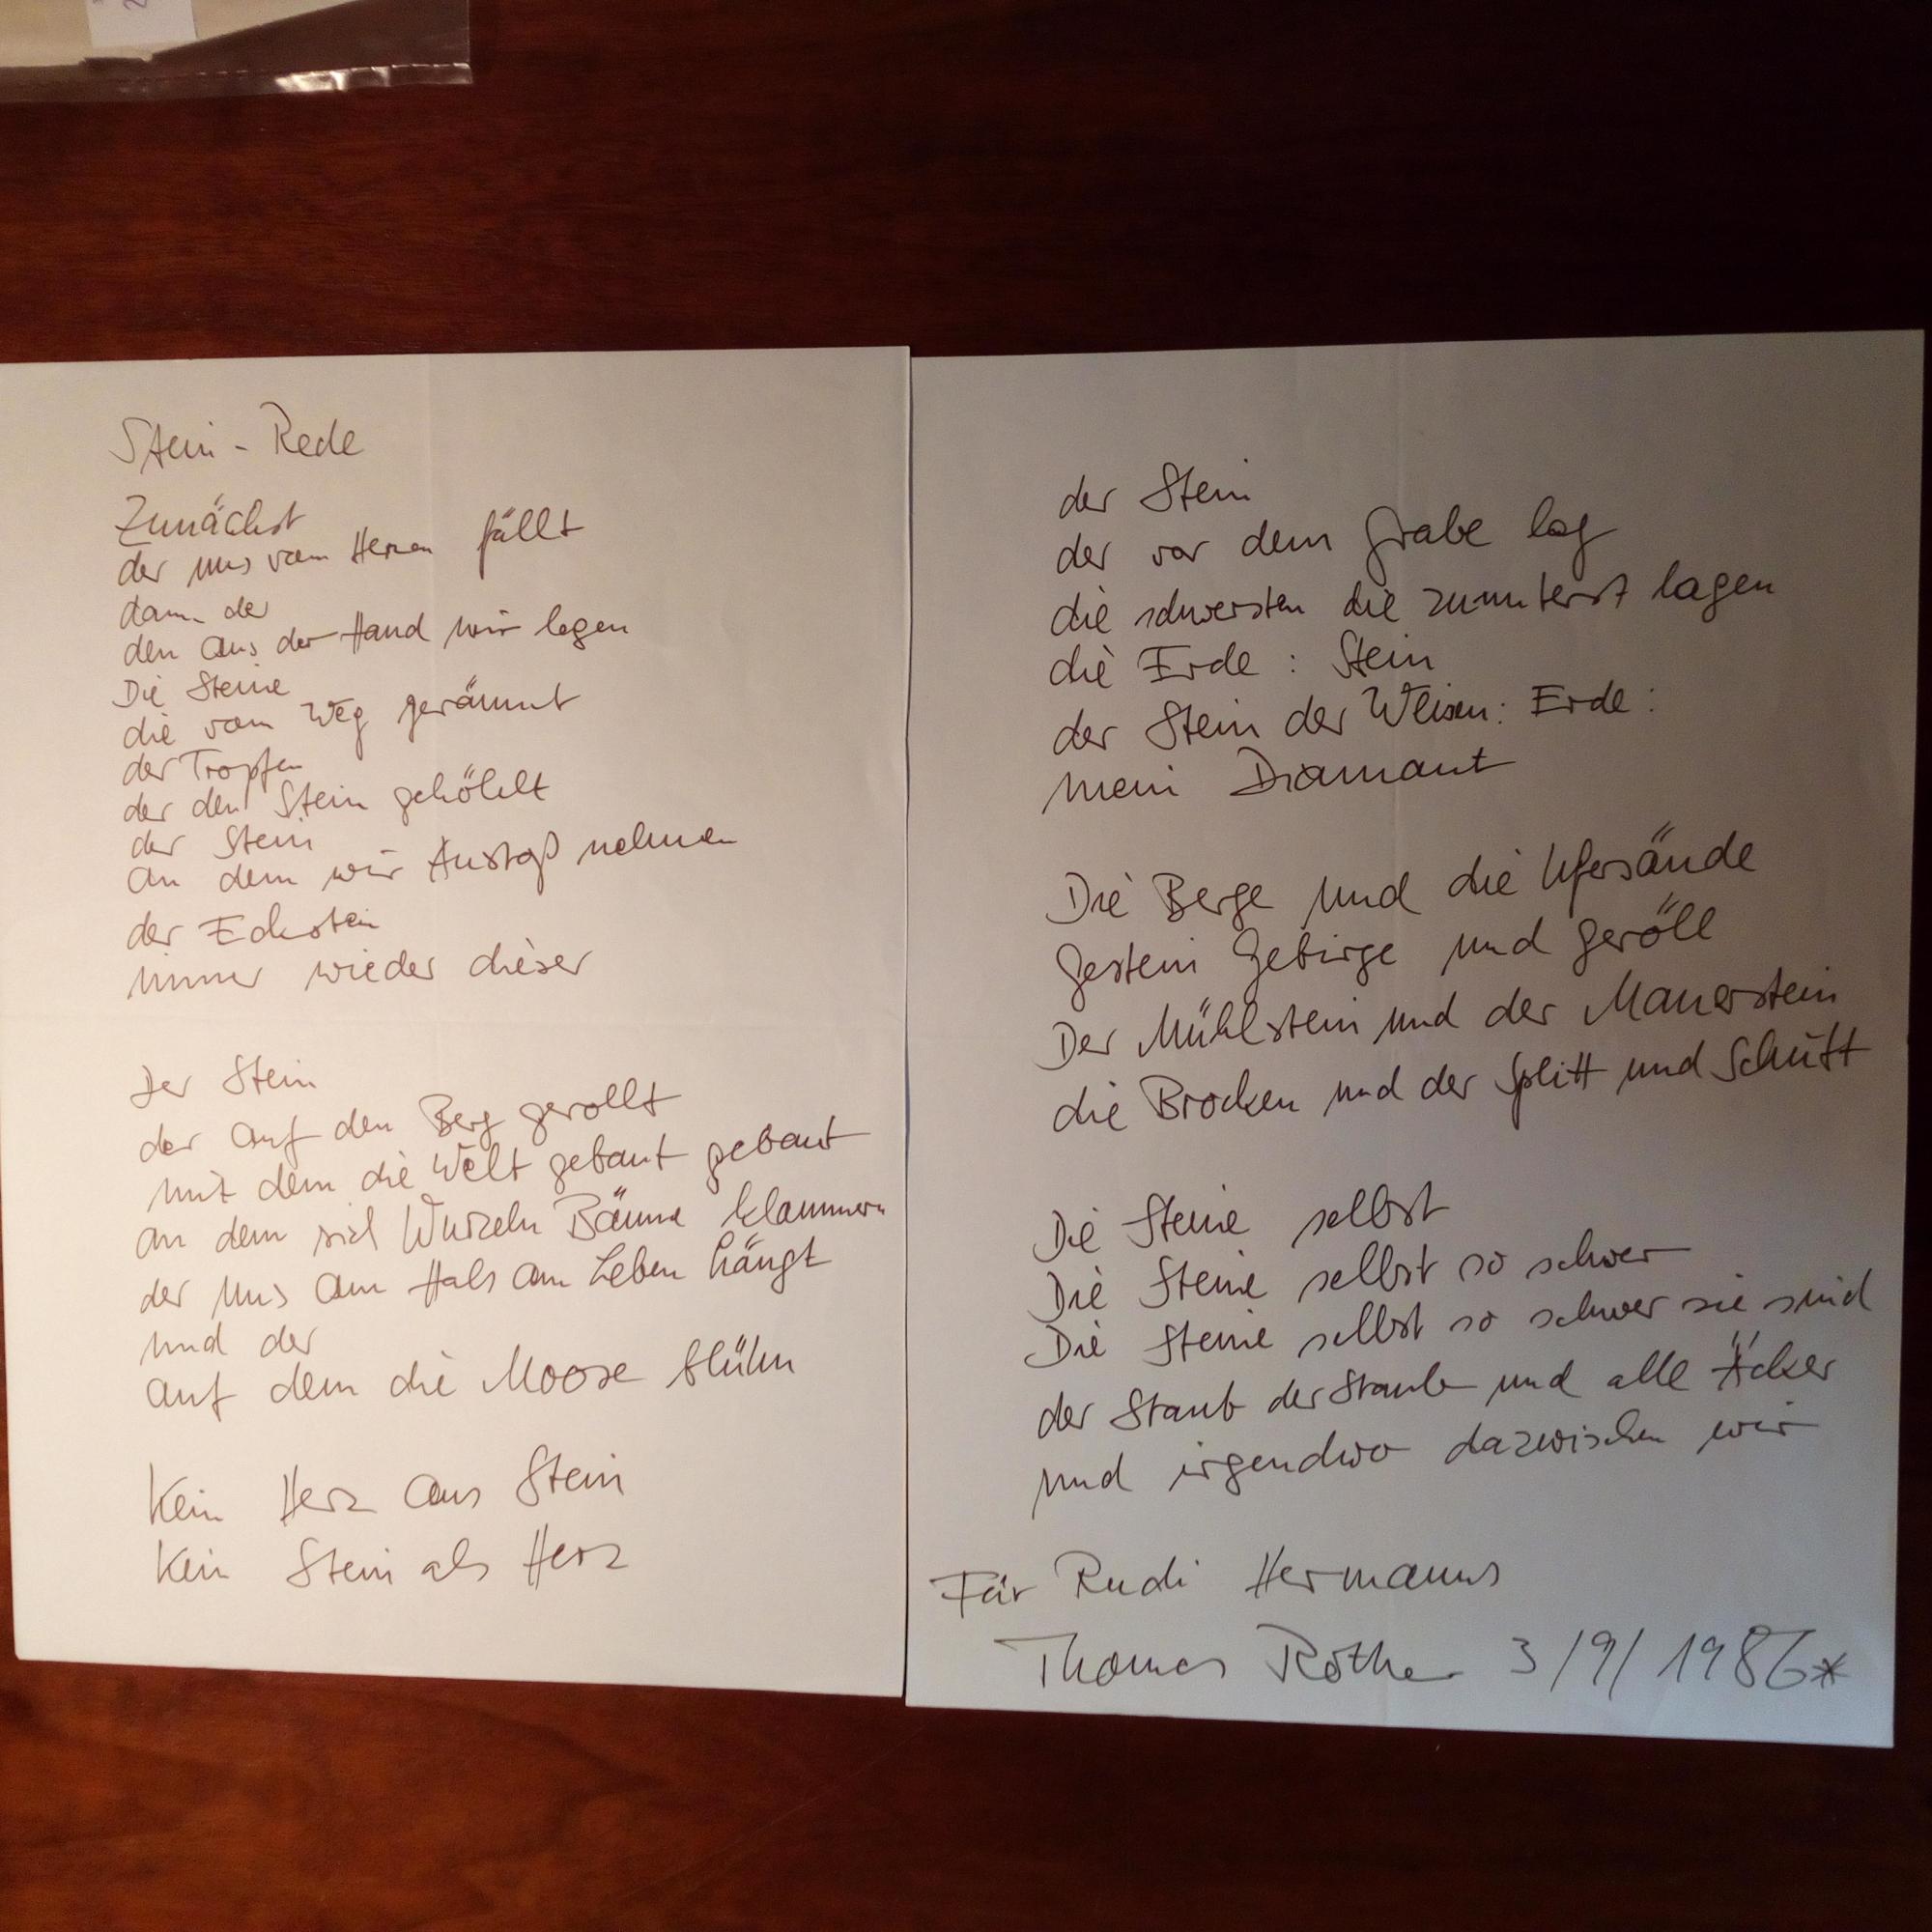 Stein - Rede
Zunächst
der uns vom Herzen fällt
dann der
den aus der Hand wir legen
Die Steine
die vom Weg geräumt
der Tropfen
der den Stein gehöhlt
der Stein
an dem wir Anstoß nehmen
der Eckstein
immer wieder dieser
Der Stein
der auf den Berg gerollt
mit dem die Welt gebaut gebaut
an dem sich Wurzeln Bäume klammern
der uns am Hals am Leben hängt
und der
auf dem die Moose blühn
Kein Herz aus Stein
Kein Stein als Herz
der Stein
der vor dem Grabe lag
die schwersten die zuunterst lagen
die Erde : Stein
der Stein der Weisen: Erde :
mein Diamant
Die Berge und die Ufersände
Gestein Gebirge und Geröll
Der Mühlstein und der Mauerstein
die Brocken und der Splitt und Schutt
Die Steine selbst
Die Steine selbst so schwer
Die Steine selbst so schwer sie sind
der Staub der Staube und alle Äcker
und irgendwo dazwischen wir
Für Rudi Hermanns
Thomas Rother 3/9/1986*